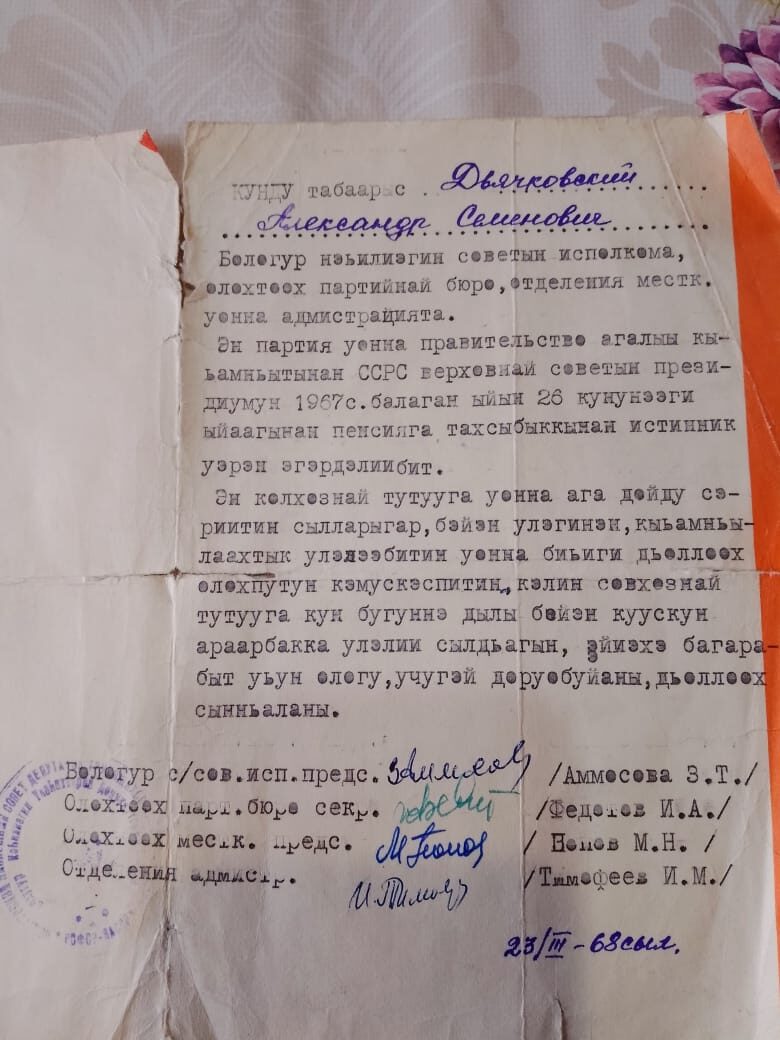 КУНДУ табаарыс . Дьячковский
Александр Семенович
Бологур нэьилиэгин советын исполкома,
олохтоох партийнай бюро,отделения местк.
уонна адмистрацията.
Эн партия уонна правительство агалыы кы-
ьамньытынан ССРС верховнай советын прези-
диумун 1967с.балаган ыйын 26 кунунээги
ыйаагынан пенсияга тахсыбыккынан истинник
уэрэн эгэрдэлиибит.
Эн колхознай тутууга уонна ага дойду сэ-
риитин сылларыгар,бэйэн улэгинэн,кыьамньы-
лаахтык улэлээбитин уонна биьиги дьоллоох
олохпутун кэмускэспитин,кэлин совхознай
тутууга кун бугуннэ дылы бэйэн куускун
араарбакка улэлии сылдьагын, эйиэхэ багара-
быт уьун ологу,учугэй доруобуйаны,дьоллоох
сынньаланы.
Бологур с/сов.исп.предс. /Аммосова З.Т./
Олохтоох парт.бюро секр. /Федотов И.А./
Олохтоох местк. предс. / Попов М.Н. /
Отделения адмистр. /Тимофеев И.М./
23/III - 68 сыл.